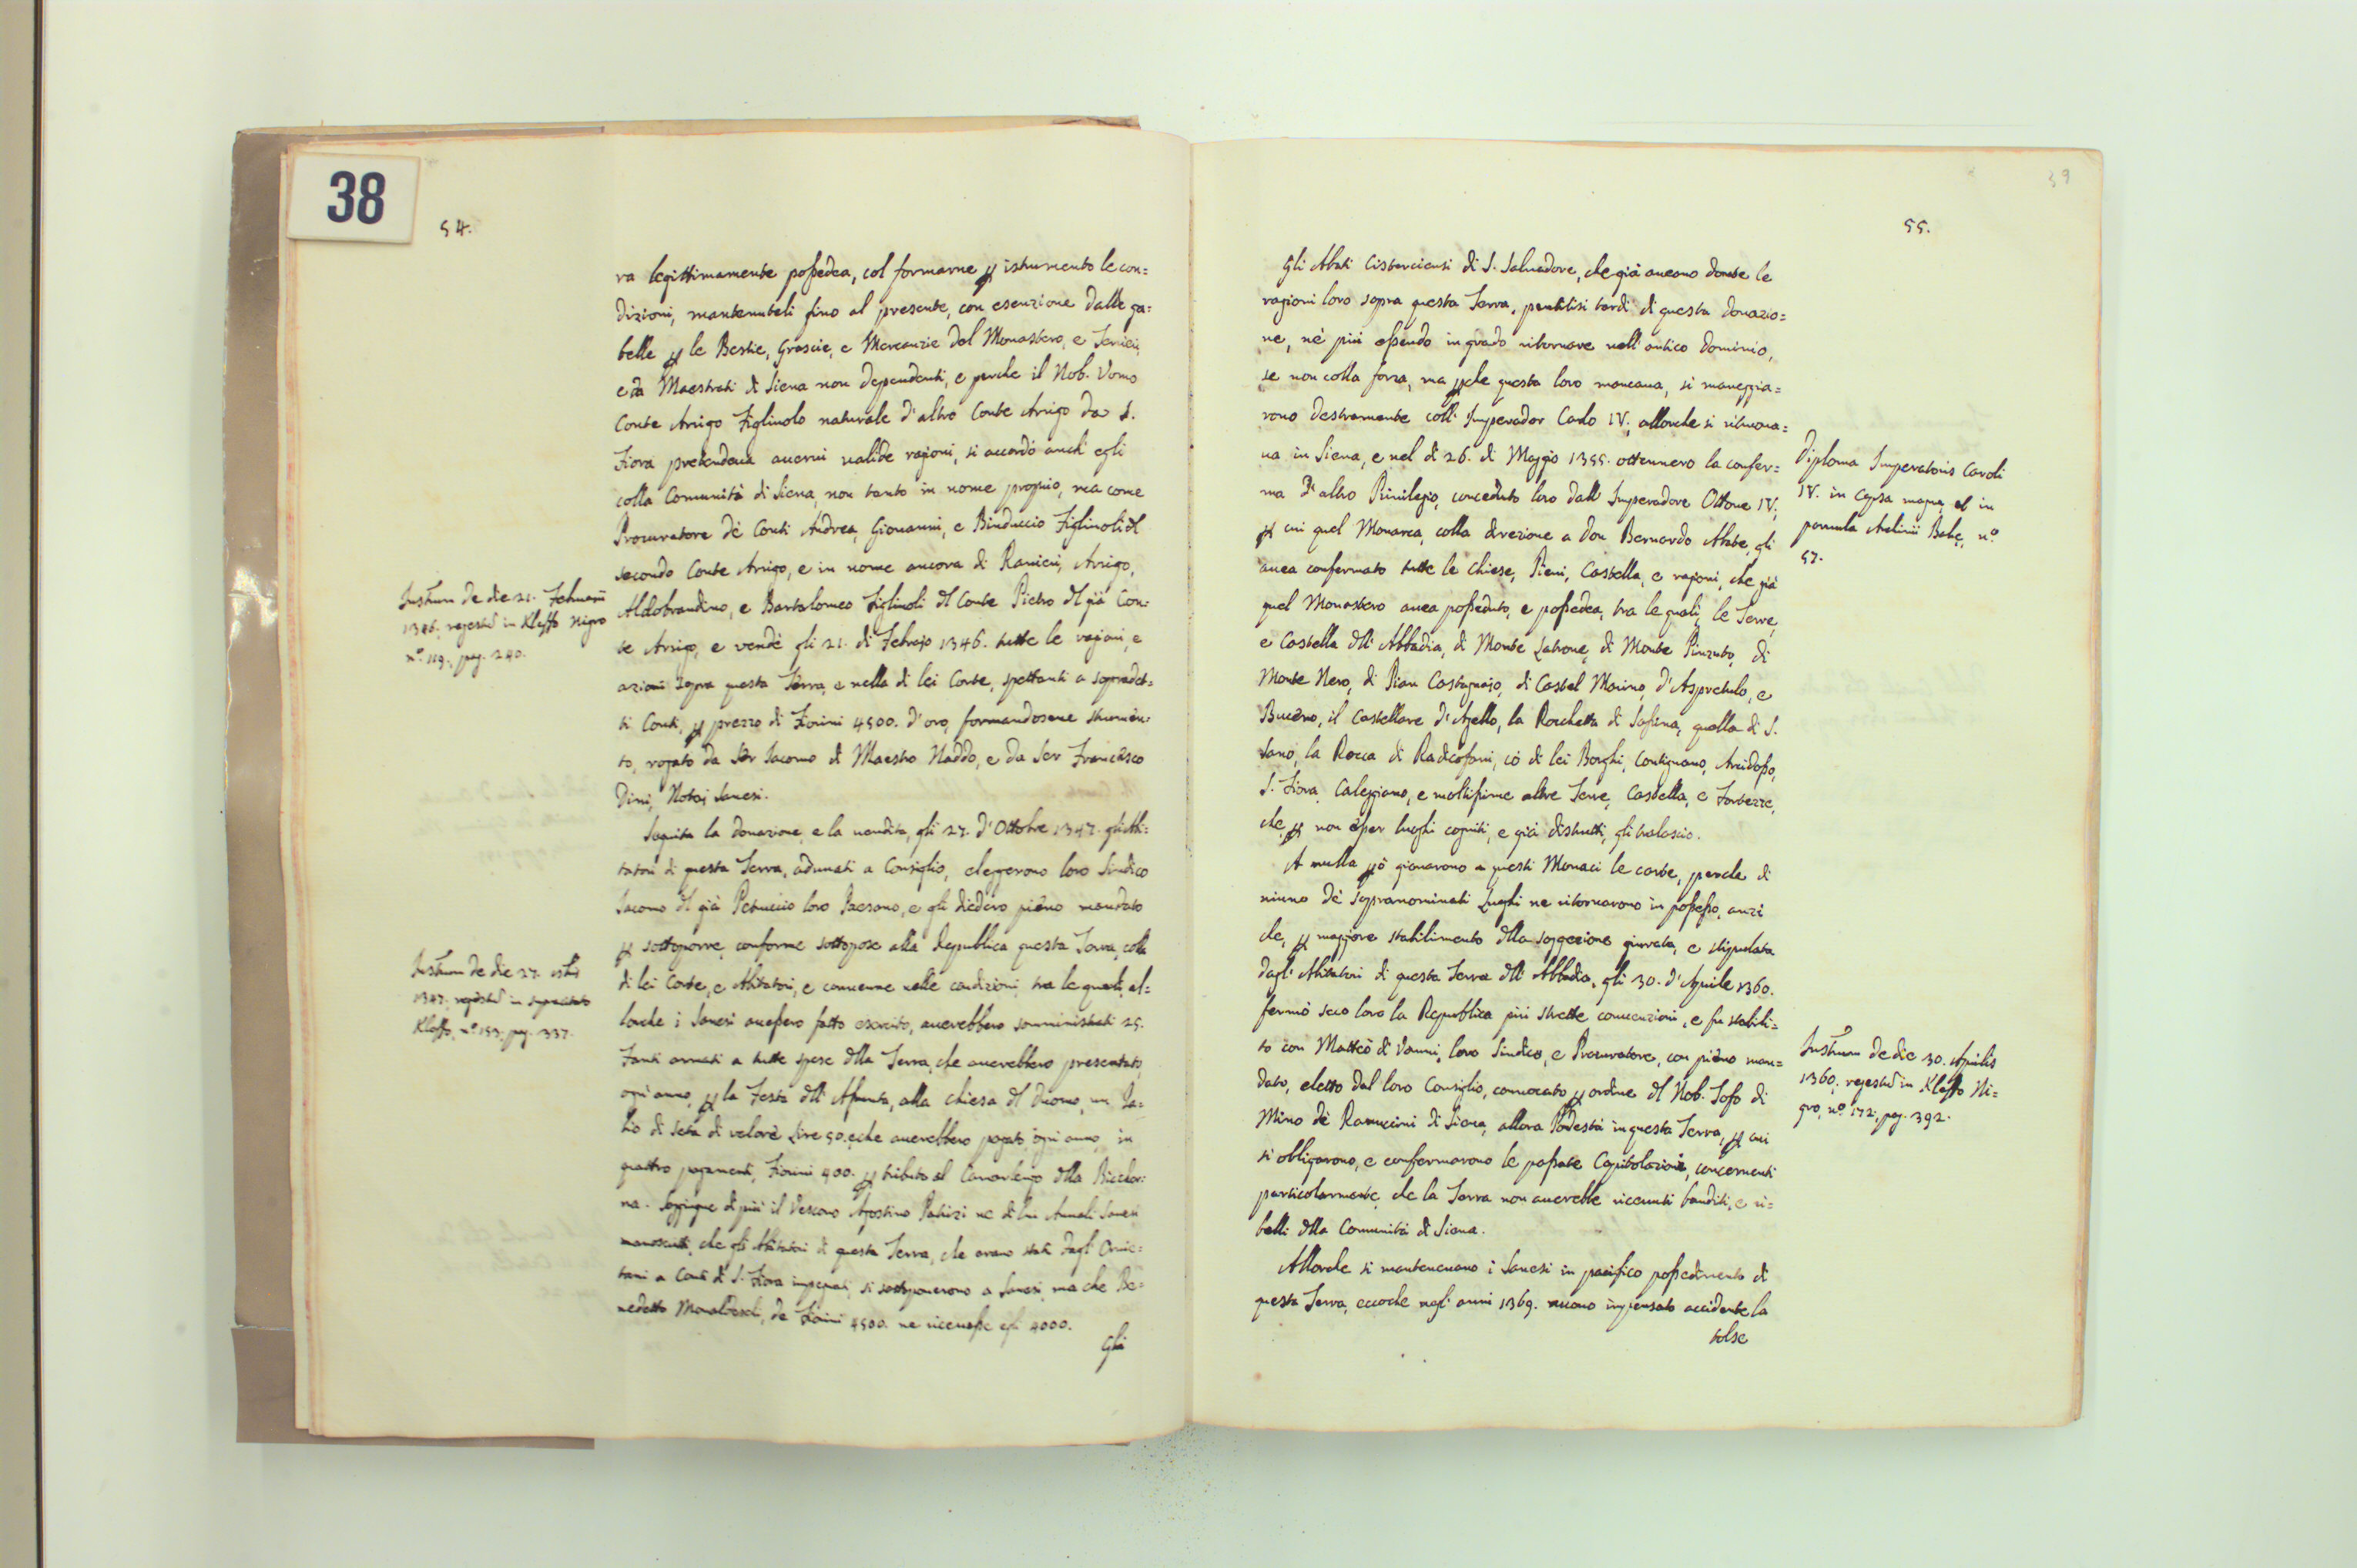 38
54.
ra legittimamente possedea, col formarne per istrumento le con=
dizioni, mantenuteli fino al presente, con esenzione dalle ga=
belle per le Bestie, Grascie, e Mercanzie del Monastero, e Servi
e da Maestrati di Siena non dependenti, e perche il Nob. Vomo
Conte Arrigo Figliuolo naturale d'altro Conte Arrigo da S.
Fiora pretendeua auerui ualide ragioni, si accordò anch' egli
colla Comunità di Siena, non tanto in nome proprio, ma come
Procuratore dè Conti Andrea, Giouanni, e Binduccio Figliuoli dl
secondo Conte Arrigo, e in nome ancora di Ranieri, Arrigo,
Instrum de die 21. Februarii
1346. regestrd in Kleffo Nigro
n.º 119., pag. 240.
Aldobrandino, e Bartolomeo Figliuoli dl Conte Pietro dl già Con-
te Arrigo, e vendè gli 21. di Febrajo 1346. tutte le ragioni, e
azioni sopra questa Terra, e nella di lei Corte, spettanti a sopradet=
ti Conti, per prezzo di Fiorini 4500. d'oro, formandosene strumen=
to, rogato da Ser Iacomo di Maestro Naddo, e da Ser Francesco
Dini, Notaj Sanesi.
Seguita la donazione, e la uendita, gli 27. d'Ottobre 1347. gli Abi=
tatori di questa Terra, adunati a Consiglio, eleggerono loro Sindico
Iacomo dl già Petruccio loro Paesano, e gli diedero pieno mandato
per sottoporre, conforme sottopose alla Republica questa Terra, colla
Instrum de die 27.
1347. regestrd in
Kleffo, n.º 153. pag. 337.
di lei Corte, e Abitatori, e conuenne nelle condizioni, tra le quali, al=
lorche i Sanesi auessero fatto esercito, auerebbero somministrati 25.
Fanti armati a tutte spese dlla Terra, che auerebbero presentato,
ogni anno, per la Festa dll' Assunta, alla Chiesa dl Duomo, un Pa=
lio di seta di valore Lire 50. e che auerebbero pagato, ogni anno, in
quattro pagamenti, Fiorini 400. per tributo al Camarlengo dlla Biccher=
na. Soggiugne di più il Vescouo Agostino Patrizi ne di lui Annali Sanesi
manoscritti, che gli Abitatori di questa Terra, che erano stati dagl' Oruie=
tani a Conti di S. Fiora impegnati, si sottoposerono a Sanesi, ma che Be=
nedetto Monaldeschi, de Fiorini 4500. ne riceuesse egli 4000.
Gli
39
55.
Gli Abati Cisterciensi di S. Saluadore, che già aueano donate le
ragioni loro sopra questa Terra, pentitisi tardi di questa donazio=
ne, nè più essendo in grado ritornare nell' antico dominio,
se non colla forza, ma perche questa loro mancaua, si maneggia=
rono destramente coll' Imperador Carlo IV., allorche si ritroua=
ua in Siena, e nel dì 26. di Maggio 1355. ottennero la confer=
ma d'altro Priuilegio, conceduto loro dall' Imperadore Ottone IV.,
per cui quel Monarca, colla direzione a Don Bernardo Abate, gli
Diploma Imperatoris Caroli
IV. in Capsa magna, et in
parmula Archiuii Balę, n.º
57.
auea confermato tutte le Chiese, Pieui, Castella, e ragioni, che già
quel Monastero auea posseduto, e possedea, tra le quali, le Terre,
e Castella dll' Abbadia, di Monte Latrone, di Monte Pinzuto, di
Monte Nero, di Pian Castagnajo, di Castel Marino, d'Aspretulo, e
Buceno, il Castellare d'Ajello, la Rocchetta di Safina, quella di S.
Sano, la Rocca di Radicofani, cò di lei Borghi, Contignano, Arcidosso,
S. Fiora, Caleggiano, e moltissime altre Terre, Castella, e Fortezze,
che, per non esser luoghi cogniti, e già distrutti, gli tralascio.
A nulla però giouarono a questi Monaci le carte, perche di
niuno dè sopranominati Luoghi ne ritornarono in possesso, anzi
che, per maggiore stabilimento dlla soggezione giurata, e stipulata
dagli Abitatori di questa Terra dll' Abbadia, gli 30. d'Aprile 1360.
fermò seco loro la Republica più strette conuenzioni, e fu stabili=
to con Matteo di Vanni, loro Sindico, e Procuratore, con pieno man=
dato, eletto dal loro Consiglio, conuocato per ordine dl Nob. Sozzo di
Mino dè Ranuccini di Siena, allora Podestà in questa Terra, per cui
Instrum de die 30. Aprilis
1360. regestrd in Kleffo Ni=
gro, n.º 172., pag. 392.
si obligarono, e confermarono le passate Capitolazioni, concernenti
particolarmente, che la Terra non auerebbe riceuuti banditi, e ri=
belli dlla Comunità di Siena.
Allorche si manteneuano i Sanesi in pacifico possedimento di
questa Terra, eccoche negli anni 1369. nuouo impensato accidente la
tolse